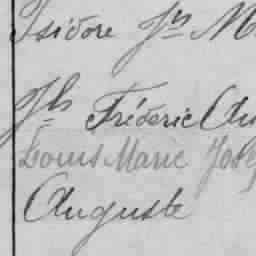 Isidore Jn M
Jh Fréderic Au
Louis Marie Jose
Auguste